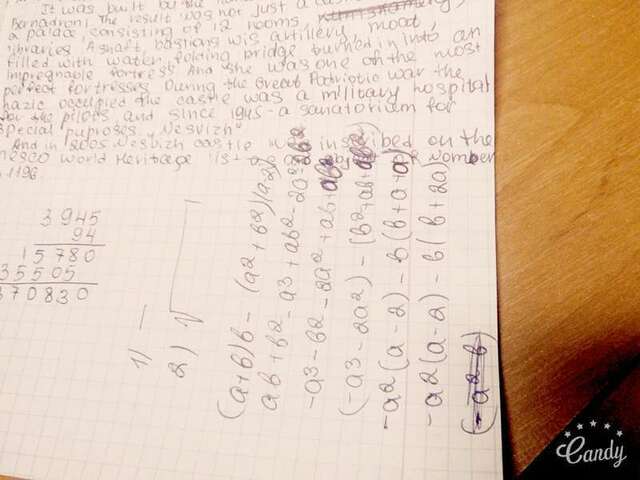 It was built by the
Bernadroni. The result was not just a
a palace, consisting of 12 rooms,
libraries. A shaft, bastions wis artillery, moat,
filled with water, folding bridge turned in into an
impregnable fortress. And she was one of the most
perfect fortresses. During the Great Patriotic war the
nazic occupied the castle was a military hospital
for the pilots, and since 1945 - a sanatorium for
special puproses "Nesvizh"
And in 2005 Nesvizh castle inscribed on the
UNESCO World Heritage number
1196
3945
94
15780
35505
370830
1) —
2) √
(a+b)b - (a2+b2)(a-2)
ab+b2-a3+ab2-2a2
-a3-b2-2a2+ab+ab2
(-a3-2a2)-(b2+ab+ab2)
-a2(a-2)-b(b+a+a)
-a2(a-2)-b(b+2a)
(-a2-b)
Candy